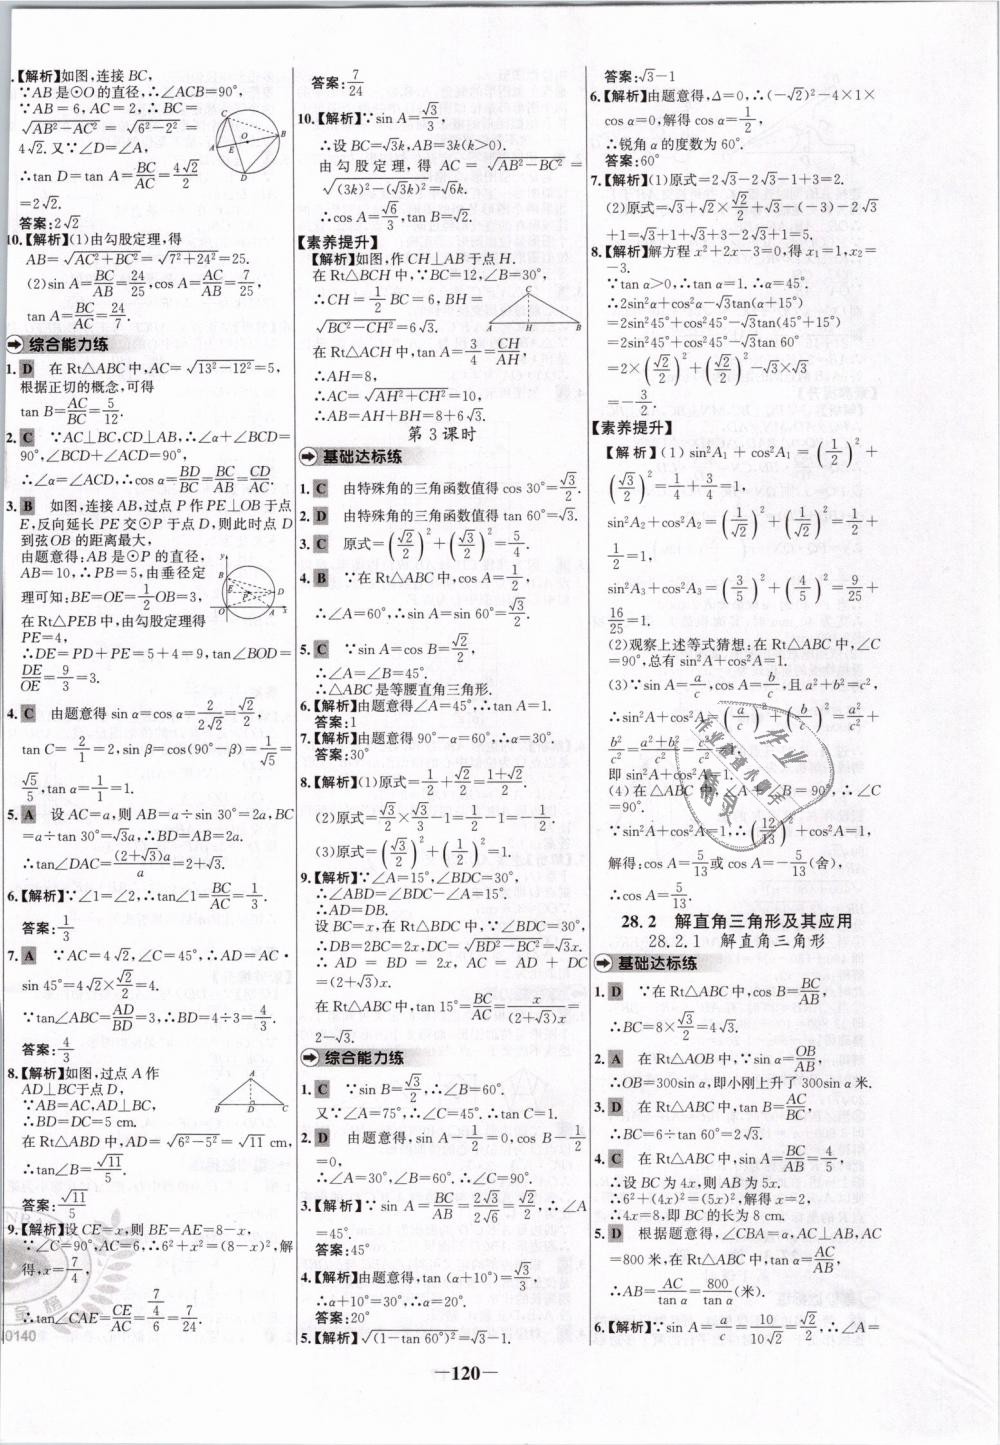 .【解析】如图,连接BC,
∵AB是⊙O的直径,∴∠ACB=90°,
∵AB=6,AC=2,∴BC=
√(AB²-AC²)=√(6²-2²)=
4√2.又∵∠D=∠A,
∴tan D=tan A=BC/AC=4√2/2
=2√2.
答案:2√2
10.【解析】(1)由勾股定理,得
AB=√(AC²+BC²)=√(7²+24²)=25.
(2)sin A=BC/AB=24/25,cos A=AC/AB=7/25,
tan A=BC/AC=24/7.
综合能力练
1. D 在Rt△ABC中,AC=√(13²-12²)=5,
根据正切的概念,可得
tan B=AC/BC=5/12.
2. C ∵AC⊥BC,CD⊥AB,∴∠α+∠BCD=
90°,∠BCD+∠ACD=90°,
∴∠α=∠ACD,∴cos α=BD/BC=BC/AB=CD/AC.
3. B 如图,连接AB,过点P作PE⊥OB于点
E,反向延长PE交⊙P于点D,则此时点D
到弦OB的距离最大,
由题意得:AB是⊙P的直径,
AB=10,∴PB=5,由垂径定
理可知:BE=OE=1/2OB=3,
在Rt△PEB中,由勾股定理得
PE=4,
∴DE=PD+PE=5+4=9,tan∠BOD=
DE/OE=9/3=3.
4. C 由题意得sin α=cos α=2/(2√2)=√2/2,
tan C=2/1=2,sin β=cos(90°-β)=1/√5=
√5/5,tan α=1/1=1.
5. A 设AC=a,则AB=a÷sin 30°=2a,BC
=a÷tan 30°=√3a,∴BD=AB=2a.
∴tan∠DAC=(2+√3)a/a=2+√3.
6.【解析】∵∠1=∠2,∴tan∠1=BC/AC=1/3.
答案:1/3
7. A ∵AC=4√2,∠C=45°,∴AD=AC·
sin 45°=4√2×√2/2=4.
∵tan∠ABC=AD/BD=3,∴BD=4÷3=4/3.
答案:4/3
8.【解析】如图,过点A作
AD⊥BC于点D,
∵AB=AC,AD⊥BC,
∴BD=DC=5 cm.
在Rt△ABD中,AD=√(6²-5²)=√11 cm,
∴tan∠B=√11/5.
答案:√11/5
9.【解析】设CE=x,则BE=AE=8-x,
∵∠C=90°,AC=6,∴6²+x²=(8-x)²,解
得,x=7/4,
∴tan∠CAE=CE/AC=(7/4)/6=7/24.
0140
答案:7/24
10.【解析】∵sin A=√3/3,
∴设BC=√3k,AB=3k(k>0).
由勾股定理,得AC=√(AB²-BC²)=
√((3k)²-(√3k)²)=√6k.
∴cos A=√6/3,tan B=√2.
【素养提升】
【解析】如图,作CH⊥AB于点H.
在Rt△BCH中,∵BC=12,∠B=30°,
∴CH=1/2BC=6,BH=
√(BC²-CH²)=6√3.
在Rt△ACH中,tan A=3/4=CH/AH,
∴AH=8,
∴AC=√(AH²+CH²)=10,
∴AB=AH+BH=8+6√3.
第3课时
基础达标练
1. C 由特殊角的三角函数值得cos 30°=√3/2.
2. D 由特殊角的三角函数值得tan 60°=√3.
3. C 原式=(√2/2)²+(√3/2)²=5/4.
4. B ∵在Rt△ABC中,cos A=1/2,
∴∠A=60°,∴sin A=sin 60°=√3/2.
5. C ∵sin A=cos B=√2/2,
∴∠A=∠B=45°.
∴△ABC是等腰直角三角形.
6.【解析】由题意得∠A=45°,∴tan A=1.
答案:1
7.【解析】由题意得90°-α=60°,∴α=30°.
答案:30°
8.【解析】(1)原式=1/2+√2/2=(1+√2)/2.
(2)原式=√3/2×√3/3-1=1/2-1=-1/2.
(3)原式=(√3/2)²+(1/2)²=1.
9.【解析】∵∠A=15°,∠BDC=30°,
∴∠ABD=∠BDC-∠A=15°.
∴AD=DB.
设BC=x,在Rt△BDC中,∵∠BDC=30°,
∴DB=2BC=2x,DC=√(BD²-BC²)=√3x.
∴AD=BD=2x,AC=AD+DC
=(2+√3)x.
在Rt△ABC中,tan 15°=BC/AC=x/((2+√3)x)=
2-√3.
综合能力练
1. C ∵sin B=√3/2,∴∠B=60°.
又∵∠A=75°,∴∠C=45°,∴tan C=1.
2. D 由题意得,sin A-1/2=0,cos B-1/2
=0,
∴∠A=30°,∠B=60°.∴∠C=90°.
3.【解析】∵sin A=BC/AB=2√3/2√6=√2/2,∴∠A
=45°.
答案:45°
4.【解析】由题意得,tan (α+10°)=√3/3,
∴α+10°=30°,∴α=20°.
答案:20°
5.【解析】√((1-tan 60°)²)=√3-1.
答案:√3-1
6.【解析】由题意得,Δ=0,∴(-√2)²-4×1×
cos α=0,解得cos α=1/2,
∴锐角α的度数为60°.
答案:60°
7.【解析】(1)原式=2√3-2√3-1+3=2.
(2)原式=√3+√2×√2/2+√3-(-3)-2√3
+1=√3+1+√3+3-2√3+1=5.
8.【解析】解方程x²+2x-3=0,得x₁=1,x₂=
-3.
∵tan α>0,∴tan α=1.∴α=45°.
∴2sin²α+cos²α-√3tan(α+15°)
=2sin²45°+cos²45°-√3tan(45°+15°)
=2sin²45°+cos²45°-√3tan 60°
=2×(√2/2)²+(√2/2)²-√3×√3
=-3/2.
【素养提升】
【解析】(1)sin²A₁+cos²A₁=(1/2)²+
(√3/2)²=1/4+3/4=1,
sin²A₂+cos²A₂=(1/√2)²+(1/√2)²=1/2+
1/2=1,
sin²A₃+cos²A₃=(3/5)²+(4/5)²=9/25+
16/25=1.
(2)观察上述等式猜想:在Rt△ABC中,∠C
=90°,总有sin²A+cos²A=1.
(3)∵sin A=a/c,cos A=b/c,且a²+b²=c²,
∴sin²A+cos²A=(a/c)²+(b/c)²=a²/c²+
b²/c²=(a²+b²)/c²=c²/c²=1.
即sin²A+cos²A=1.
(4)在△ABC中,∠A+∠B=90°,∴∠C
=90°.
∵sin²A+cos²A=1,∴(12/13)²+cos²A=1,
解得:cos A=5/13或cos A=-5/13(舍),
∴cos A=5/13.
28.2 解直角三角形及其应用
28.2.1 解直角三角形
基础达标练
1. D ∵在Rt△ABC中,cos B=BC/AB,
∴BC=8×√3/2=4√3.
2. A 在Rt△AOB中,∵sin α=OB/AB,
∴OB=300sin α,即小刚上升了300sin α米.
3. D 在Rt△ABC中,tan B=AC/BC,
∴BC=6÷tan 60°=2√3.
4. C 在Rt△ABC中,∵sin A=BC/AB=4/5,
∴设BC为4x,则AB为5x.
∴6²+(4x)²=(5x)²,解得x=2,
∴4x=8,即BC的长为8 cm.
5. D 根据题意,∠CBA=α,AC⊥AB,AC
=800米,在Rt△ABC中,∵tan α=AC/AB,
∴AB=AC/tan α=800/tan α(米).
6.【解析】∵sin A=a/c=10/(10√2)=√2/2,∴∠A=
—120—